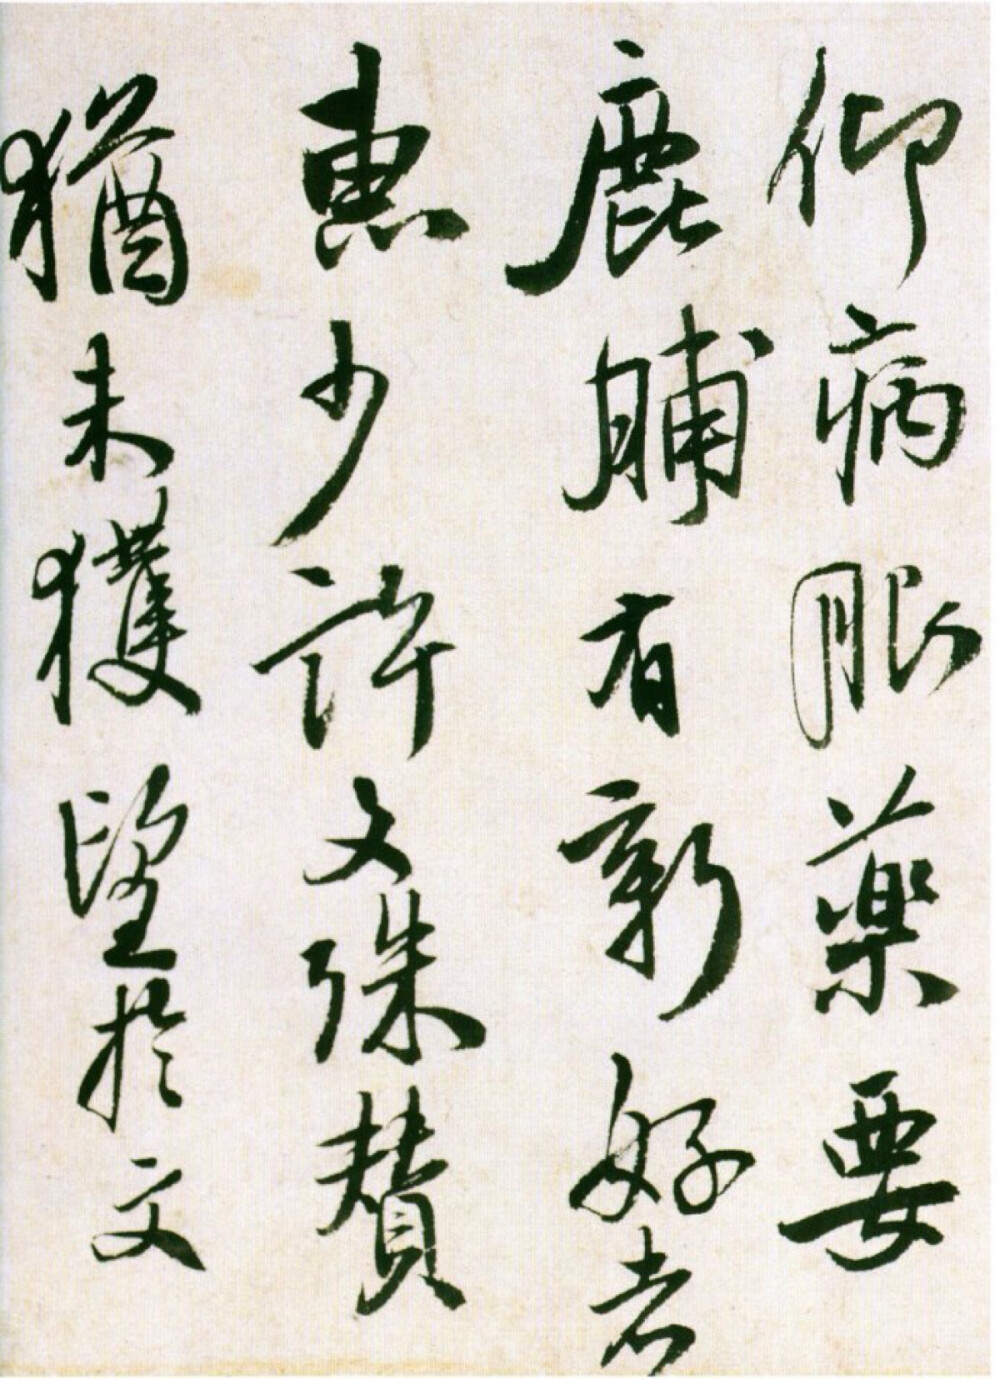 仰病服藥要
鹿脯有新好者
惠少許文殊贊
猶未獲望於文